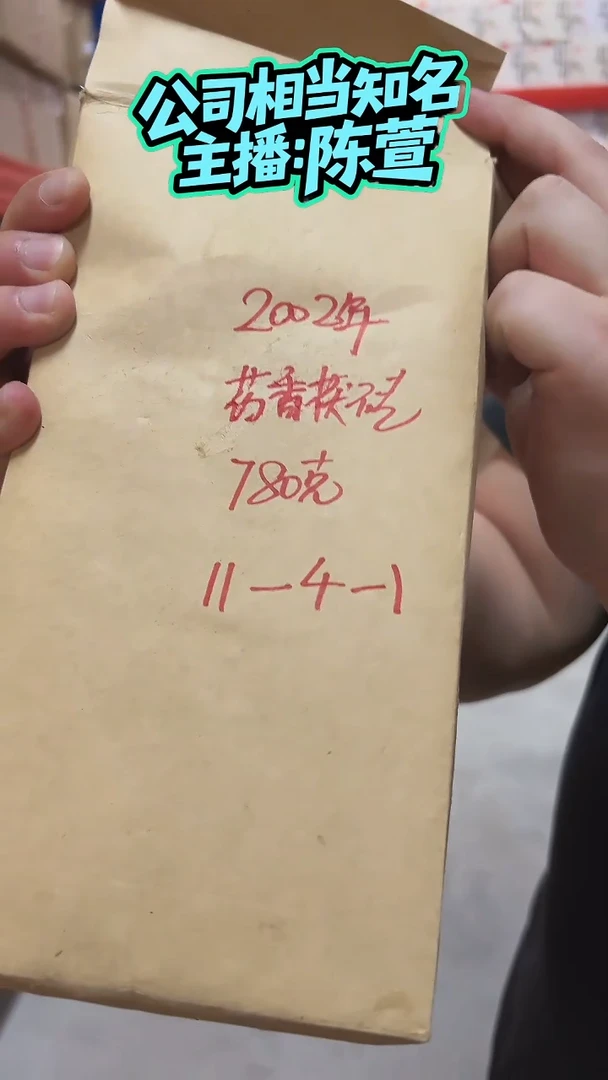 公司相当知名
主播:陈萱
2002年
药香茯砖
780克
11-4-1